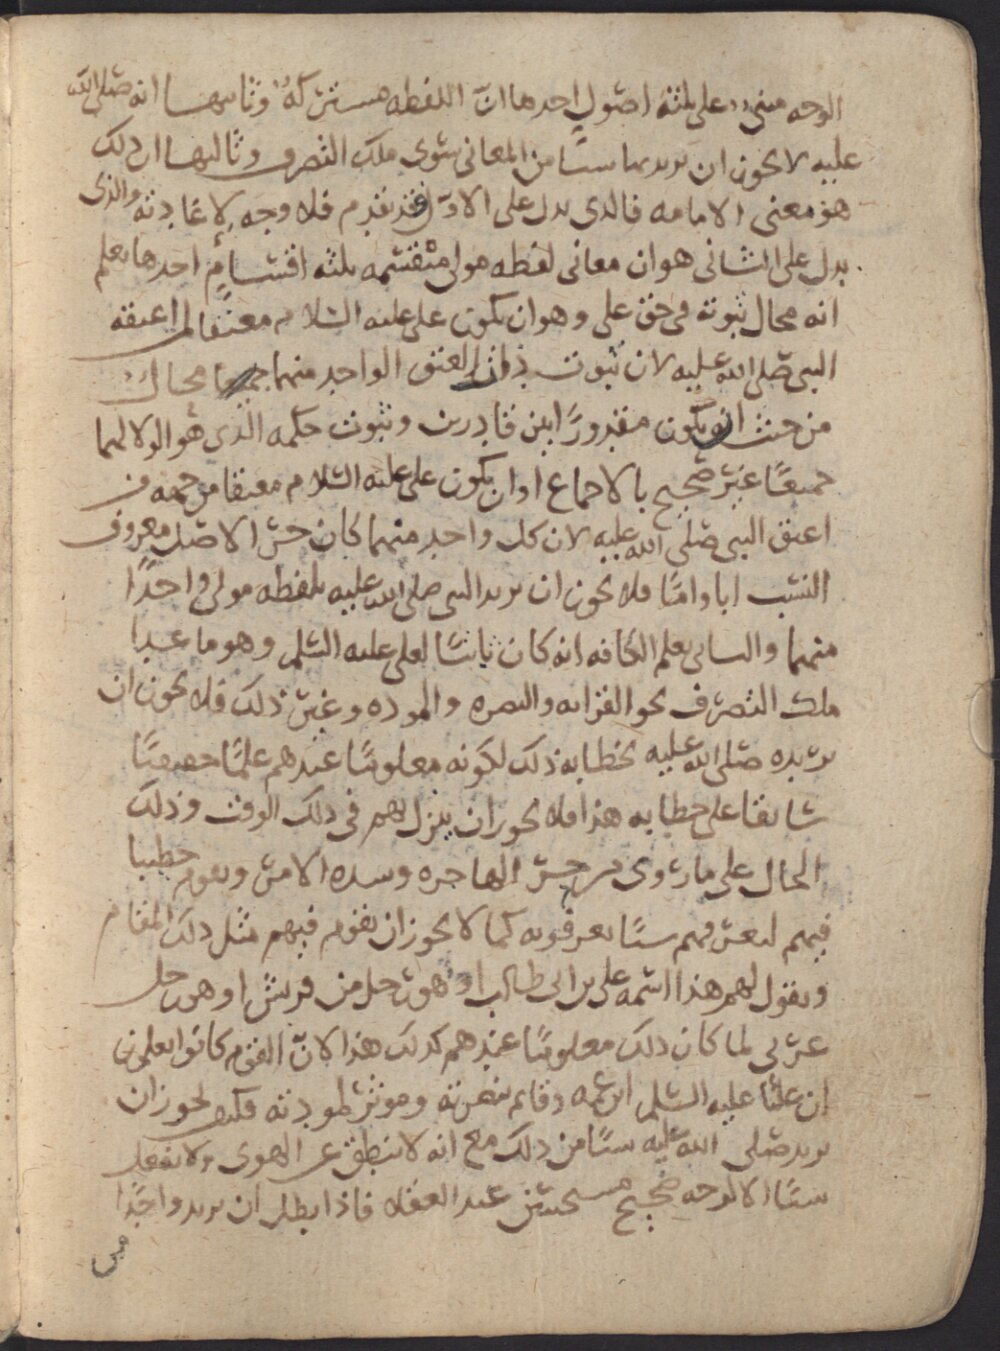 الوجه مبني على ثلثة اصول احدها ان اللفظه مشتركه وثانيها انه صلى الله
عليه لا يجوز ان يريد بها شيئا من المعاني سوى ملك التصرف وثالثها ان ذلك
هو معنى الامامه فالذي يدل على الاول فقد تقدم فلا وجه لاعادته والذي
يدل على الثاني هو ان معاني لفظه مولى منقسمه ثلثه اقسام احدها يعلم
انه محال ثبوته في حق علي وهو ان يكون علي عليه السلام معتقا لمن اعتقه
النبي صلى الله عليه لان ثبوت العتق الواحد منهما جميعا محال
من حيث انه يكون مقدورا بين قادرين وثبوت حكمه الذي هو الولا لهما
جميعا غير صحيح بالاجماع او ان يكون علي عليه السلام معتقا من جهه من
اعتق النبي صلى الله عليه لان كل واحد منهما كان حر الاصل معروف
النسب ابا واما فلا يجوز ان يريد النبي صلى الله عليه بلفظه مولى واحدا
منهما والثاني يعلم الكافه انه كان ثابتا لعلي عليه السلم وهو ما عدا
ملك التصرف نحو القرابه والنصره والموده وغير ذلك فلا يجوز ان
يريده صلى الله عليه بخطابه ذلك لكونه معلوما عندهم علما حقيقيا
سابقا على خطابه هذا فلا يجوز ان ينزل لهم في ذلك الوقت وذلك
الحال على ما روي من حر الهاجره وشده الامر ويقوم خطيبا
فيهم ليعرفهم شيئا يعرفونه كما لا يجوز ان يقوم فيهم مثل ذلك المقام
ويقول لهم هذا اسمه علي بن ابي طالب او هو رجل من قريش او هو رجل
عربي لما كان ذلك معلوما عندهم كذلك هذا لان القوم كانوا يعلمون
ان عليا عليه السلم ابن عمه وقايم بنصرته وموثر لمودته فكيف يجوز ان
يريد صلى الله عليه شيئا من ذلك مع انه لا ينطق عن الهوى ولا يفعل
شيئا الا لوجه صحيح مستحسن عند العقلا فاذا بطل ان يريد واحدا
من